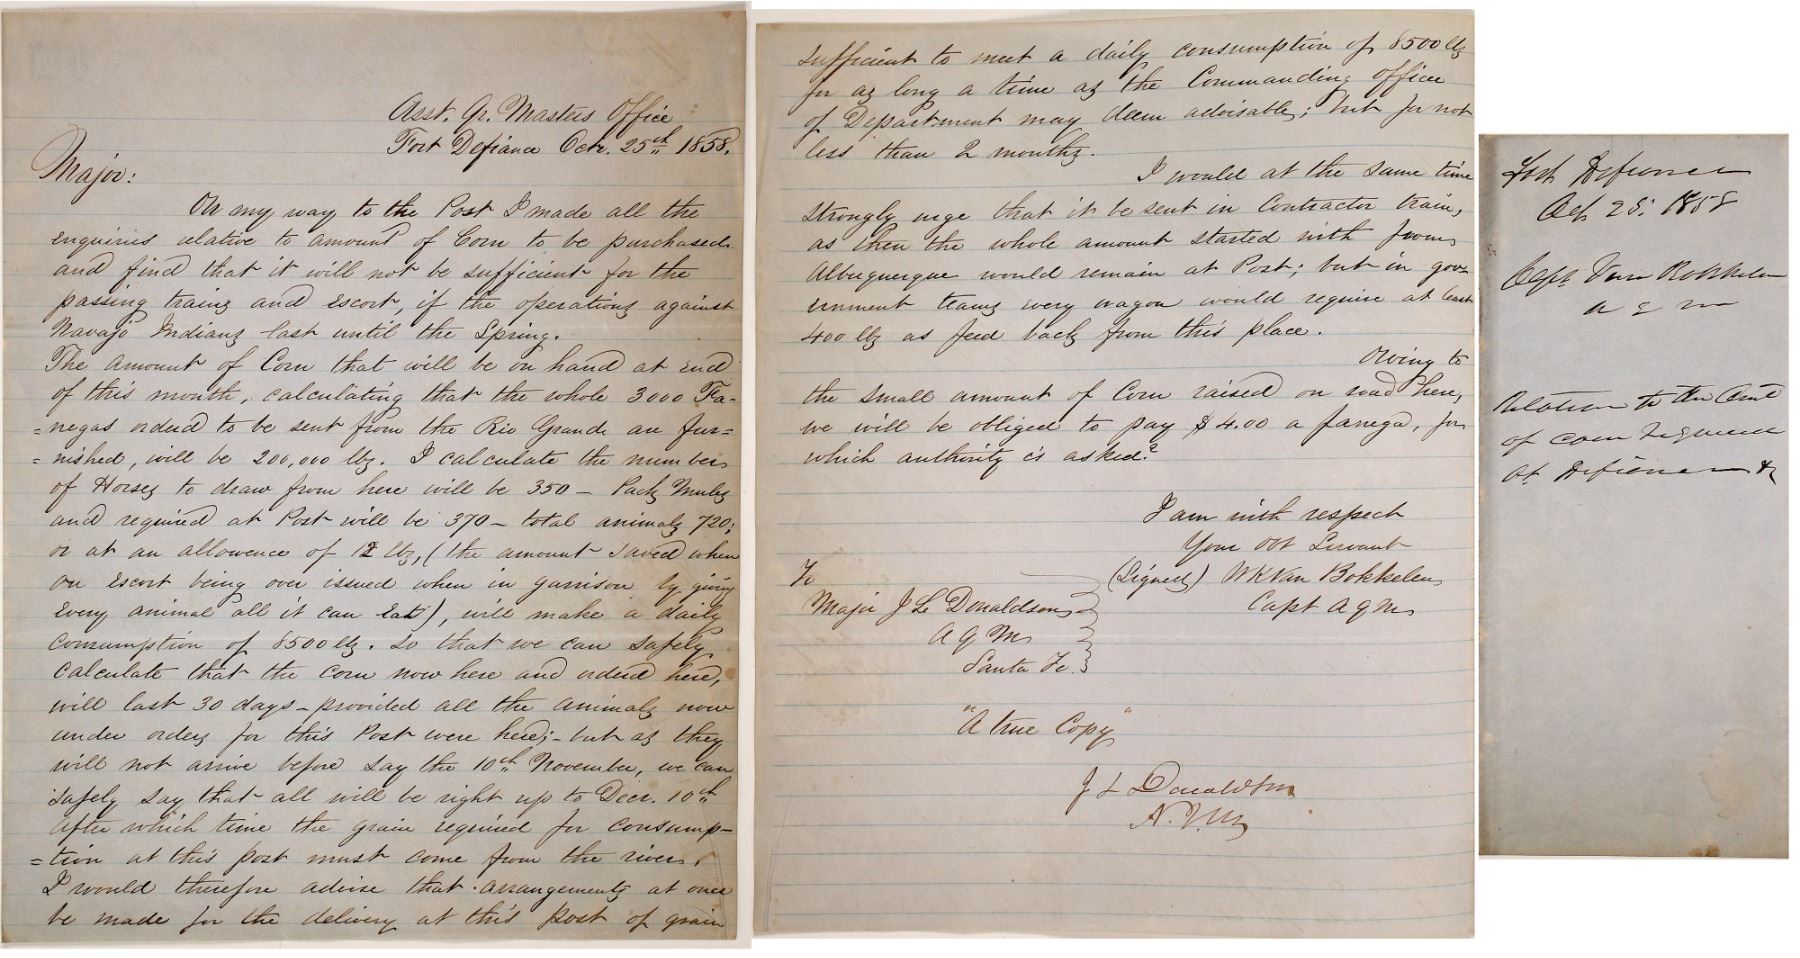 Asst. Qr. Masters Office
Fort Defiance Octr. 25th 1858.
Major:
On my way to the Post I made all the
enquiries relative to amount of Corn to be purchased
and find that it will not be sufficient for the
passing trains and escort, if the operations against
Navajo Indians last until the Spring.
The amount of Corn that will be on hand at end
of this month, calculating that the whole 3000 Fa-
=negas ordered to be sent from the Rio Grande are fur=
=nished, will be 200,000 lbs. I calculate the number
of Horses to draw from here will be 350 - Pack Mules
and required at Post will be 370 - total animals 720;
or at an allowence of 12 lbs, (the amount saved when
on escort being over issued when in garrison by giving
every animal all it can eat), will make a daily
consumption of 8500 lbs. So that we can safely
calculate that the corn now here and ordered here,
will last 30 days - provided all the animals now
under orders for this Post were here; - but as they
will not arrive before say the 10th November, we can
safely say that all will be right up to Decr. 10th
after which time the grain required for consump-
=tion at this post must come from the river.
I would therefore advise that arrangements at once
be made for the delivery at this post of grain
sufficient to meet a daily consumption of 8500 lbs
for as long a time as the Commanding Officer
of Department may deem advisable; but for not
less than 2 months.
I would at the same time
strongly urge that it be sent in Contractor train,
as then the whole amount started with from
Albuquerque would remain at Post; but in gov-
ernment teams every wagon would require at least
400 lbs as feed back from this place.
Owing to
the small amount of Corn raised on road here,
we will be obliged to pay $4.00 a fanega, for
which authority is asked?
I am with respect
Your Obt Servant
(Signed) W K Van Bokkelen
Capt A Q M
To
Major J L Donaldson
A Q M
Santa Fe.
"A true Copy"
J L Donaldson
A.Q.M
Fort Defiance
Oct 25. 1858
Capt Van Bokkelen
A Q M
Relation to the Amt
of corn required
at Defiance &c